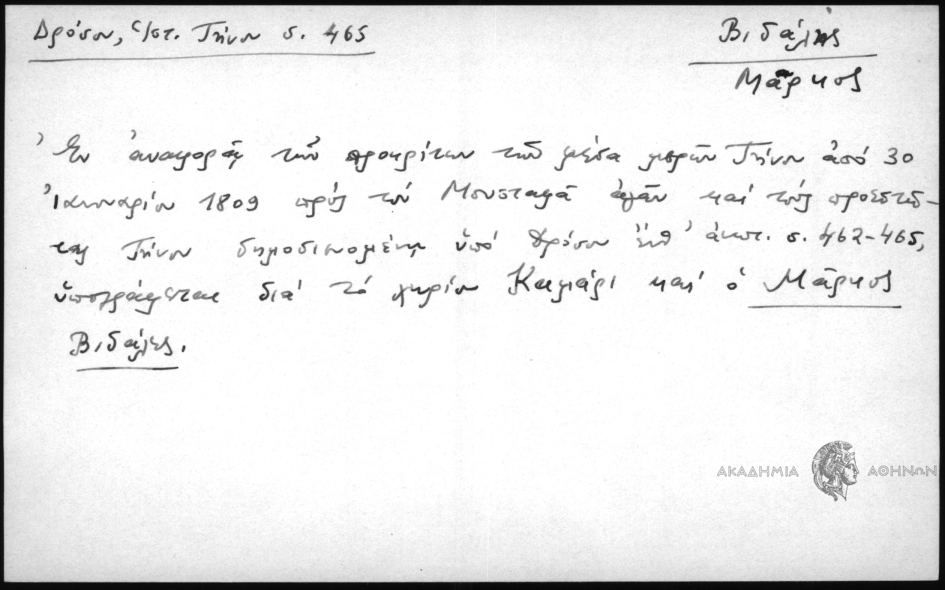 Δρόσου, Ἱστ. Τήνου σ. 465
Βιδάλης
Μᾶρκος
Ἐν ἀναφορᾷ τῶν προκρίτων τῶν μέσα μερῶν Τήνου ἀπό 30
Ἰανουαρίου 1809 πρός τόν Μουσταφᾶ ἀγᾶν καί τούς προεστῶ-
τας Τήνου δημοσιευομένῃ ὑπό Δρόσου ἔνθ' ἀνωτ. σ. 462-465,
ὑπογράφεται διά τό χωρίον Καμάρι καί ὁ Μᾶρκος
Βιδάλης.
ΑΚΑΔΗΜΙΑ ΑΘΗΝΩΝ